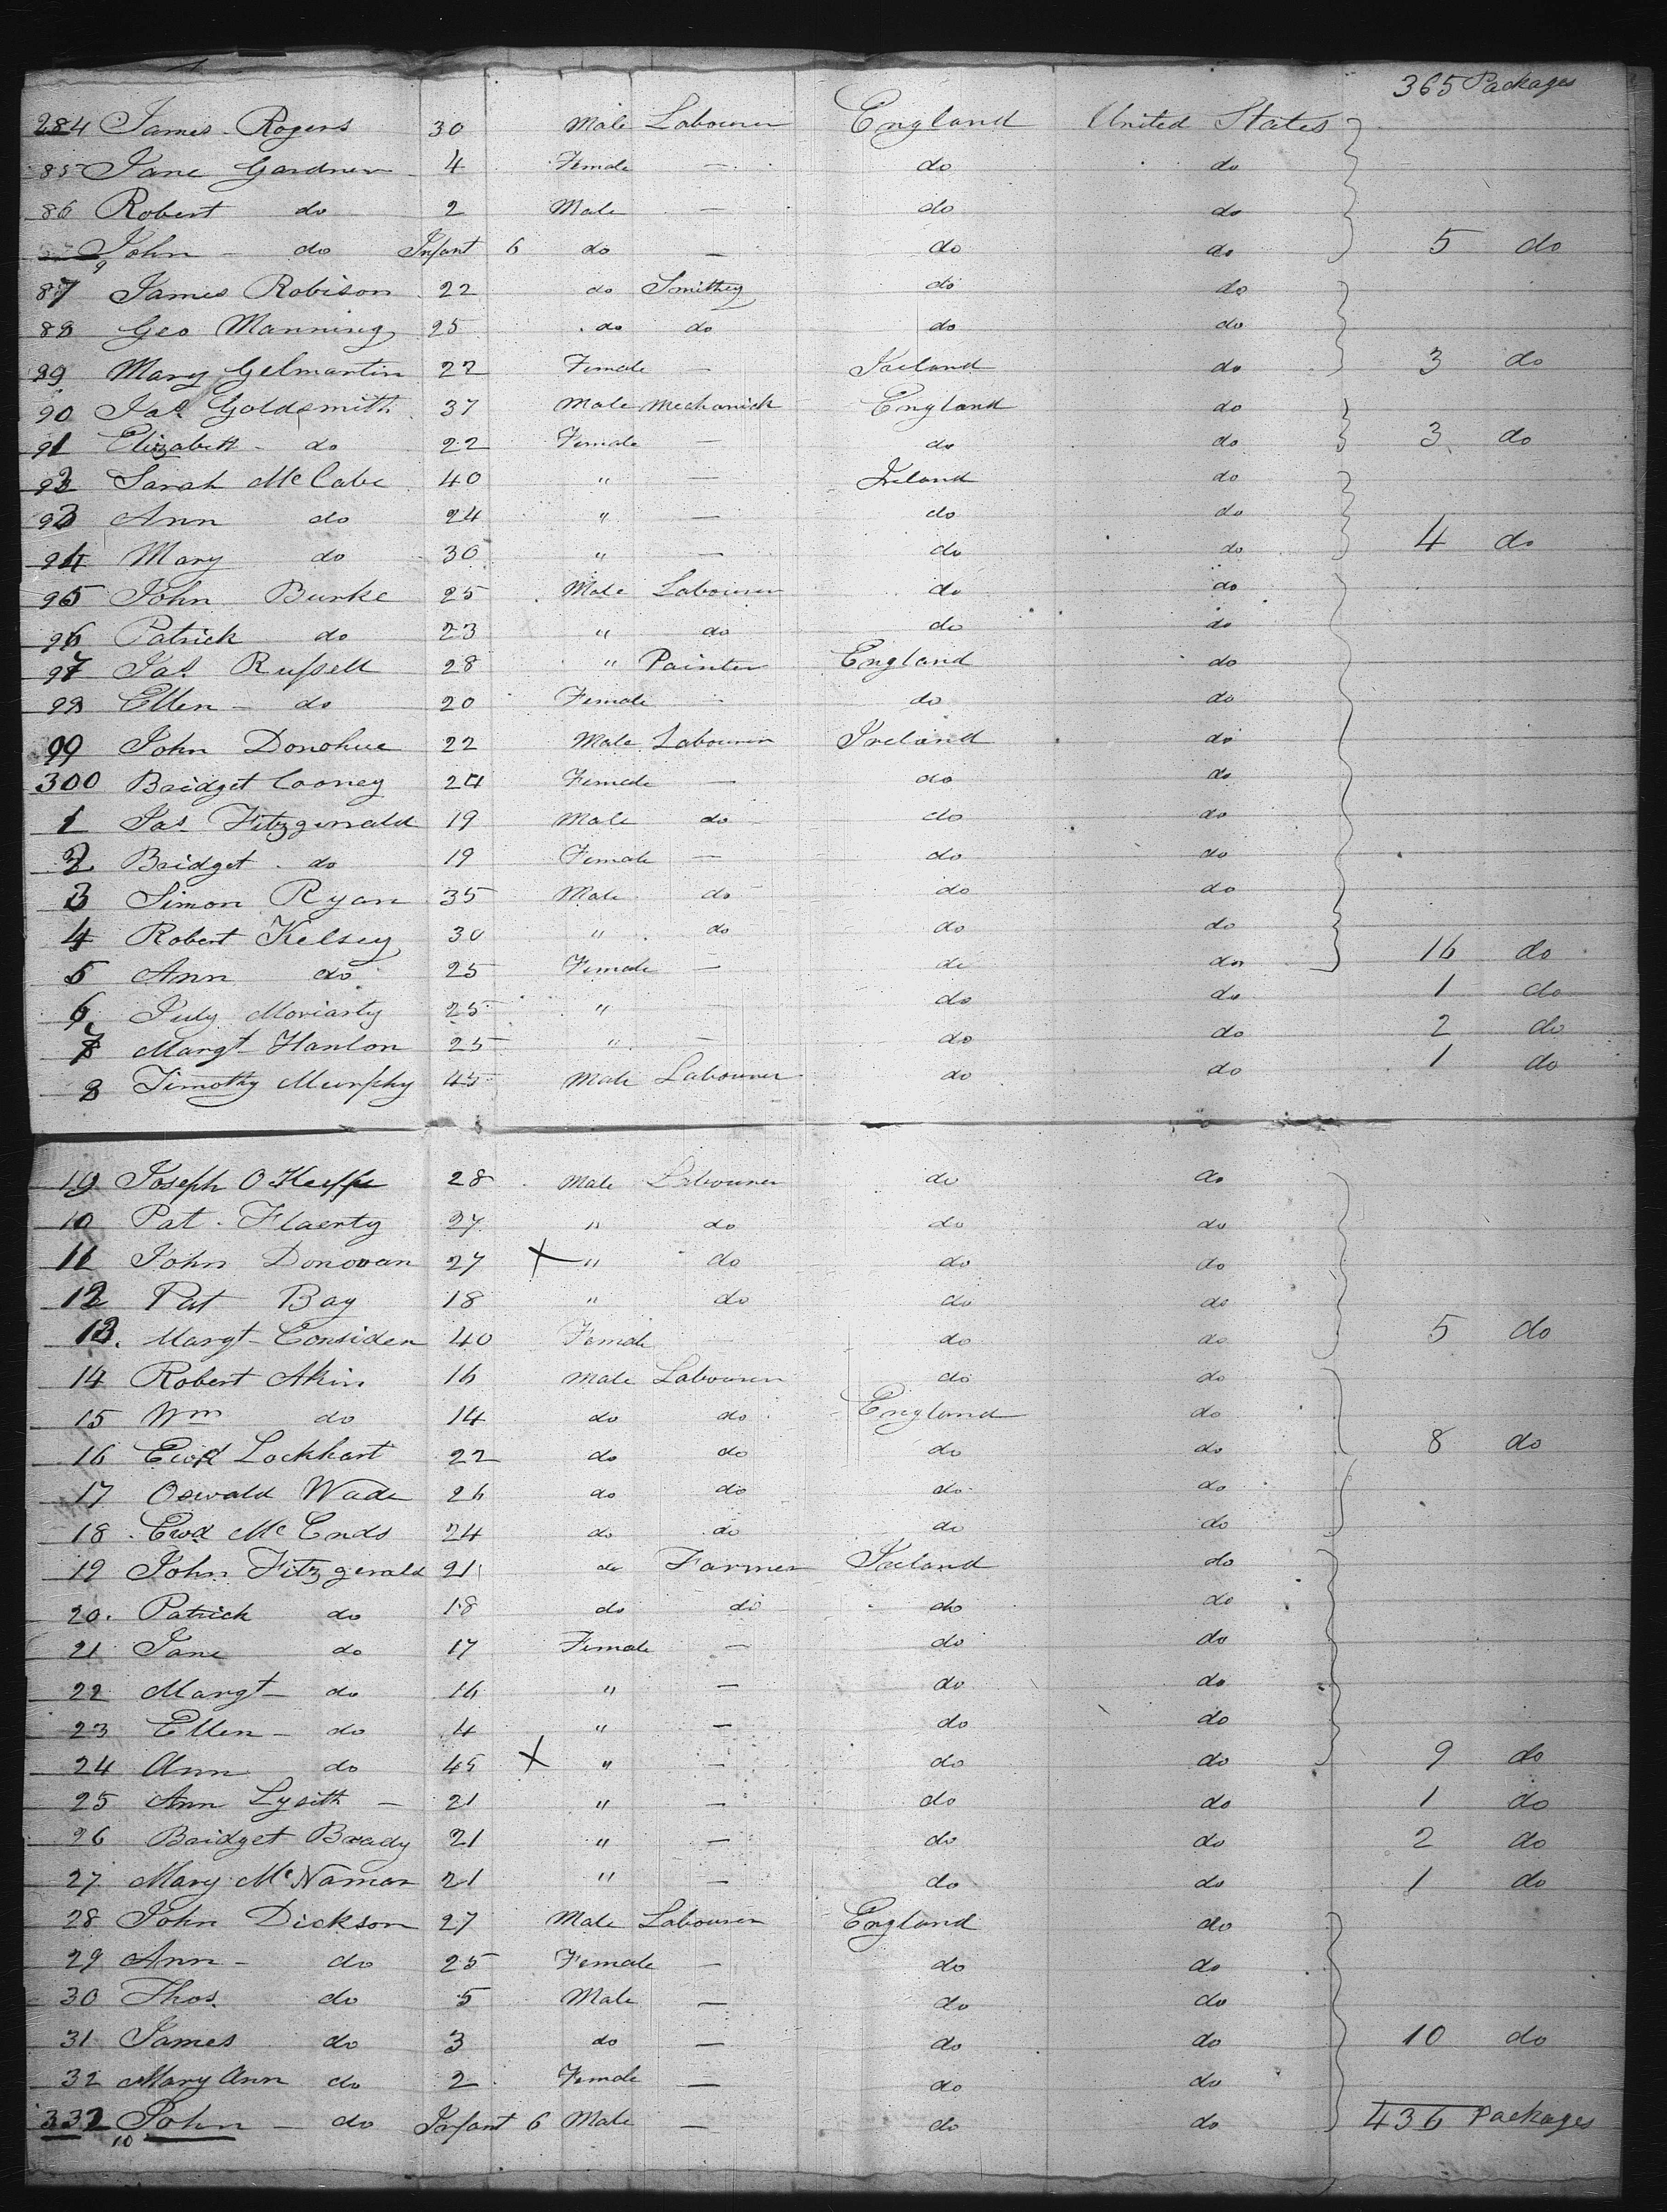 365 Packages
284 James Rogers 30 Male Labourer England United States
85 Jane Gardner 4 Female — do do
86 Robert do 2 Male — do do
John — do Infant 6 do — do do 5 do
9
87 James Robison 22 do Smithey do do
88 Geo Manning 25 do do do do
89 Mary Gelmartin 22 Female — Ireland do 3 do
90 Jas Goldsmith 37 Male Mechanick England do
91 Elizabeth - do 22 Female — do do 3 do
92 Sarah McCabe 40 " — Ireland do
93 Ann do 24 " — do do
94 Mary do 30 " — do do 4 do
95 John Burke 25 Male Labourer do do
96 Patrick do 23 " do do do
97 Jas Russell 28 " Painter England do
98 Ellen — do 20 Female — do do
99 John Donohue 22 Male Labourer Ireland do
300 Bridget Cooney 24 Female — do do
1 Jas Fitzgerrald 19 Male do do do
2 Bridget - do 19 Female — do do
3 Simon Ryan 35 Male do do do
4 Robert Kelsey 30 " do do do
5 Ann do 25 Female — do do 16 do
6 July Moriarty 25 " — do do 1 do
7 Margt Hanlon 25 " — do do 2 do
8 Timothy Murphy 45 Male Labourer do do 1 do
19 Joseph O Keeffe 28 Male Labourer do do
10 Pat. Flaerty 27 " do do do
11 John Donovan 27 X " do do do
12 Pat Bay 18 " do do do
13. Margt Considen 40 Female do do 5 do
14 Robert Akin 16 Male Labourer do do
15 Wm do 14 do do England do
16 Ewd Lockhart 22 do do do do 8 do
17 Oswald Wade 26 do do do do
18 Ewd Mc Ends 24 do do do do
19 John Fitzgerald 21 do Farmer Ireland do
20. Patrick do 18 do do do do
21 Jane do 17 Female — do do
22 Margt — do 16 " — do do
23 Ellen — do 4 " — do do
24 Ann do 45 X " — do do 9 do
25 Ann Lysith — 21 " — do do 1 do
26 Bridget Brady 21 " — do do 2 do
27 Mary McNamar 21 " — do do 1 do
28 John Dickson 27 Male Labourer England do
29 Ann — do 25 Female — do do
30 Thos. do 5 Male — do do
31 James do 3 do — do do 10 do
32 Mary Ann do 2 Female — do do
332 John — do Infant 6 Male — do do 436 Packages
10